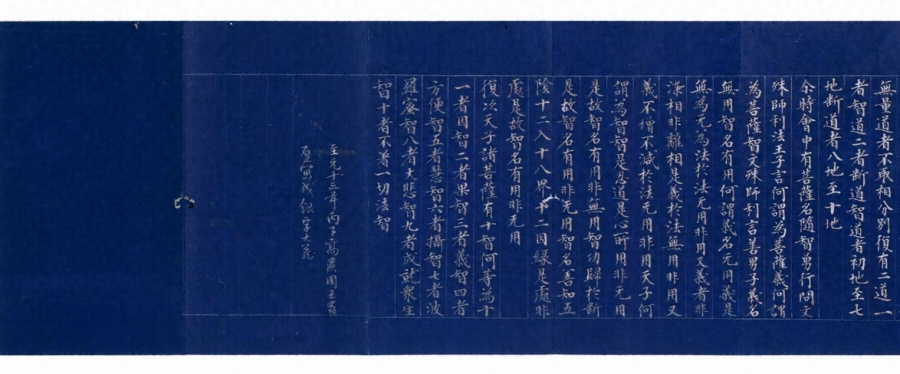 無量道者不取相分別復有二道一
者智道二者断道智道者初地至七
地断道者八地至十地
尒時會中有菩薩名隨智勇行問文
殊師利法王子言何謂為菩薩義何謂
為菩薩智文殊師利言善男子義名
無用智名有用何謂義名无用義是
無為无為法於法无用非用又義者非
濂相非離相是義於法無用非用又
義不增不減於法无用非用天子何
謂為智智是道是心所用非无用
是故智名有用非無用智功歸於斷
是故智名有用非无用智名善知五
陰十二入十八界十二因緣是處非
處是故智名有用非无用
復次天子諸菩薩有十智何等為十
一者因智二者果智三者義智四者
方便智五者慧智六者攝智七者波
羅蜜智八者大悲智九者成就衆生
智十者不著一切法智
至元十三年丙子高麗國王
寫成銀字大藏